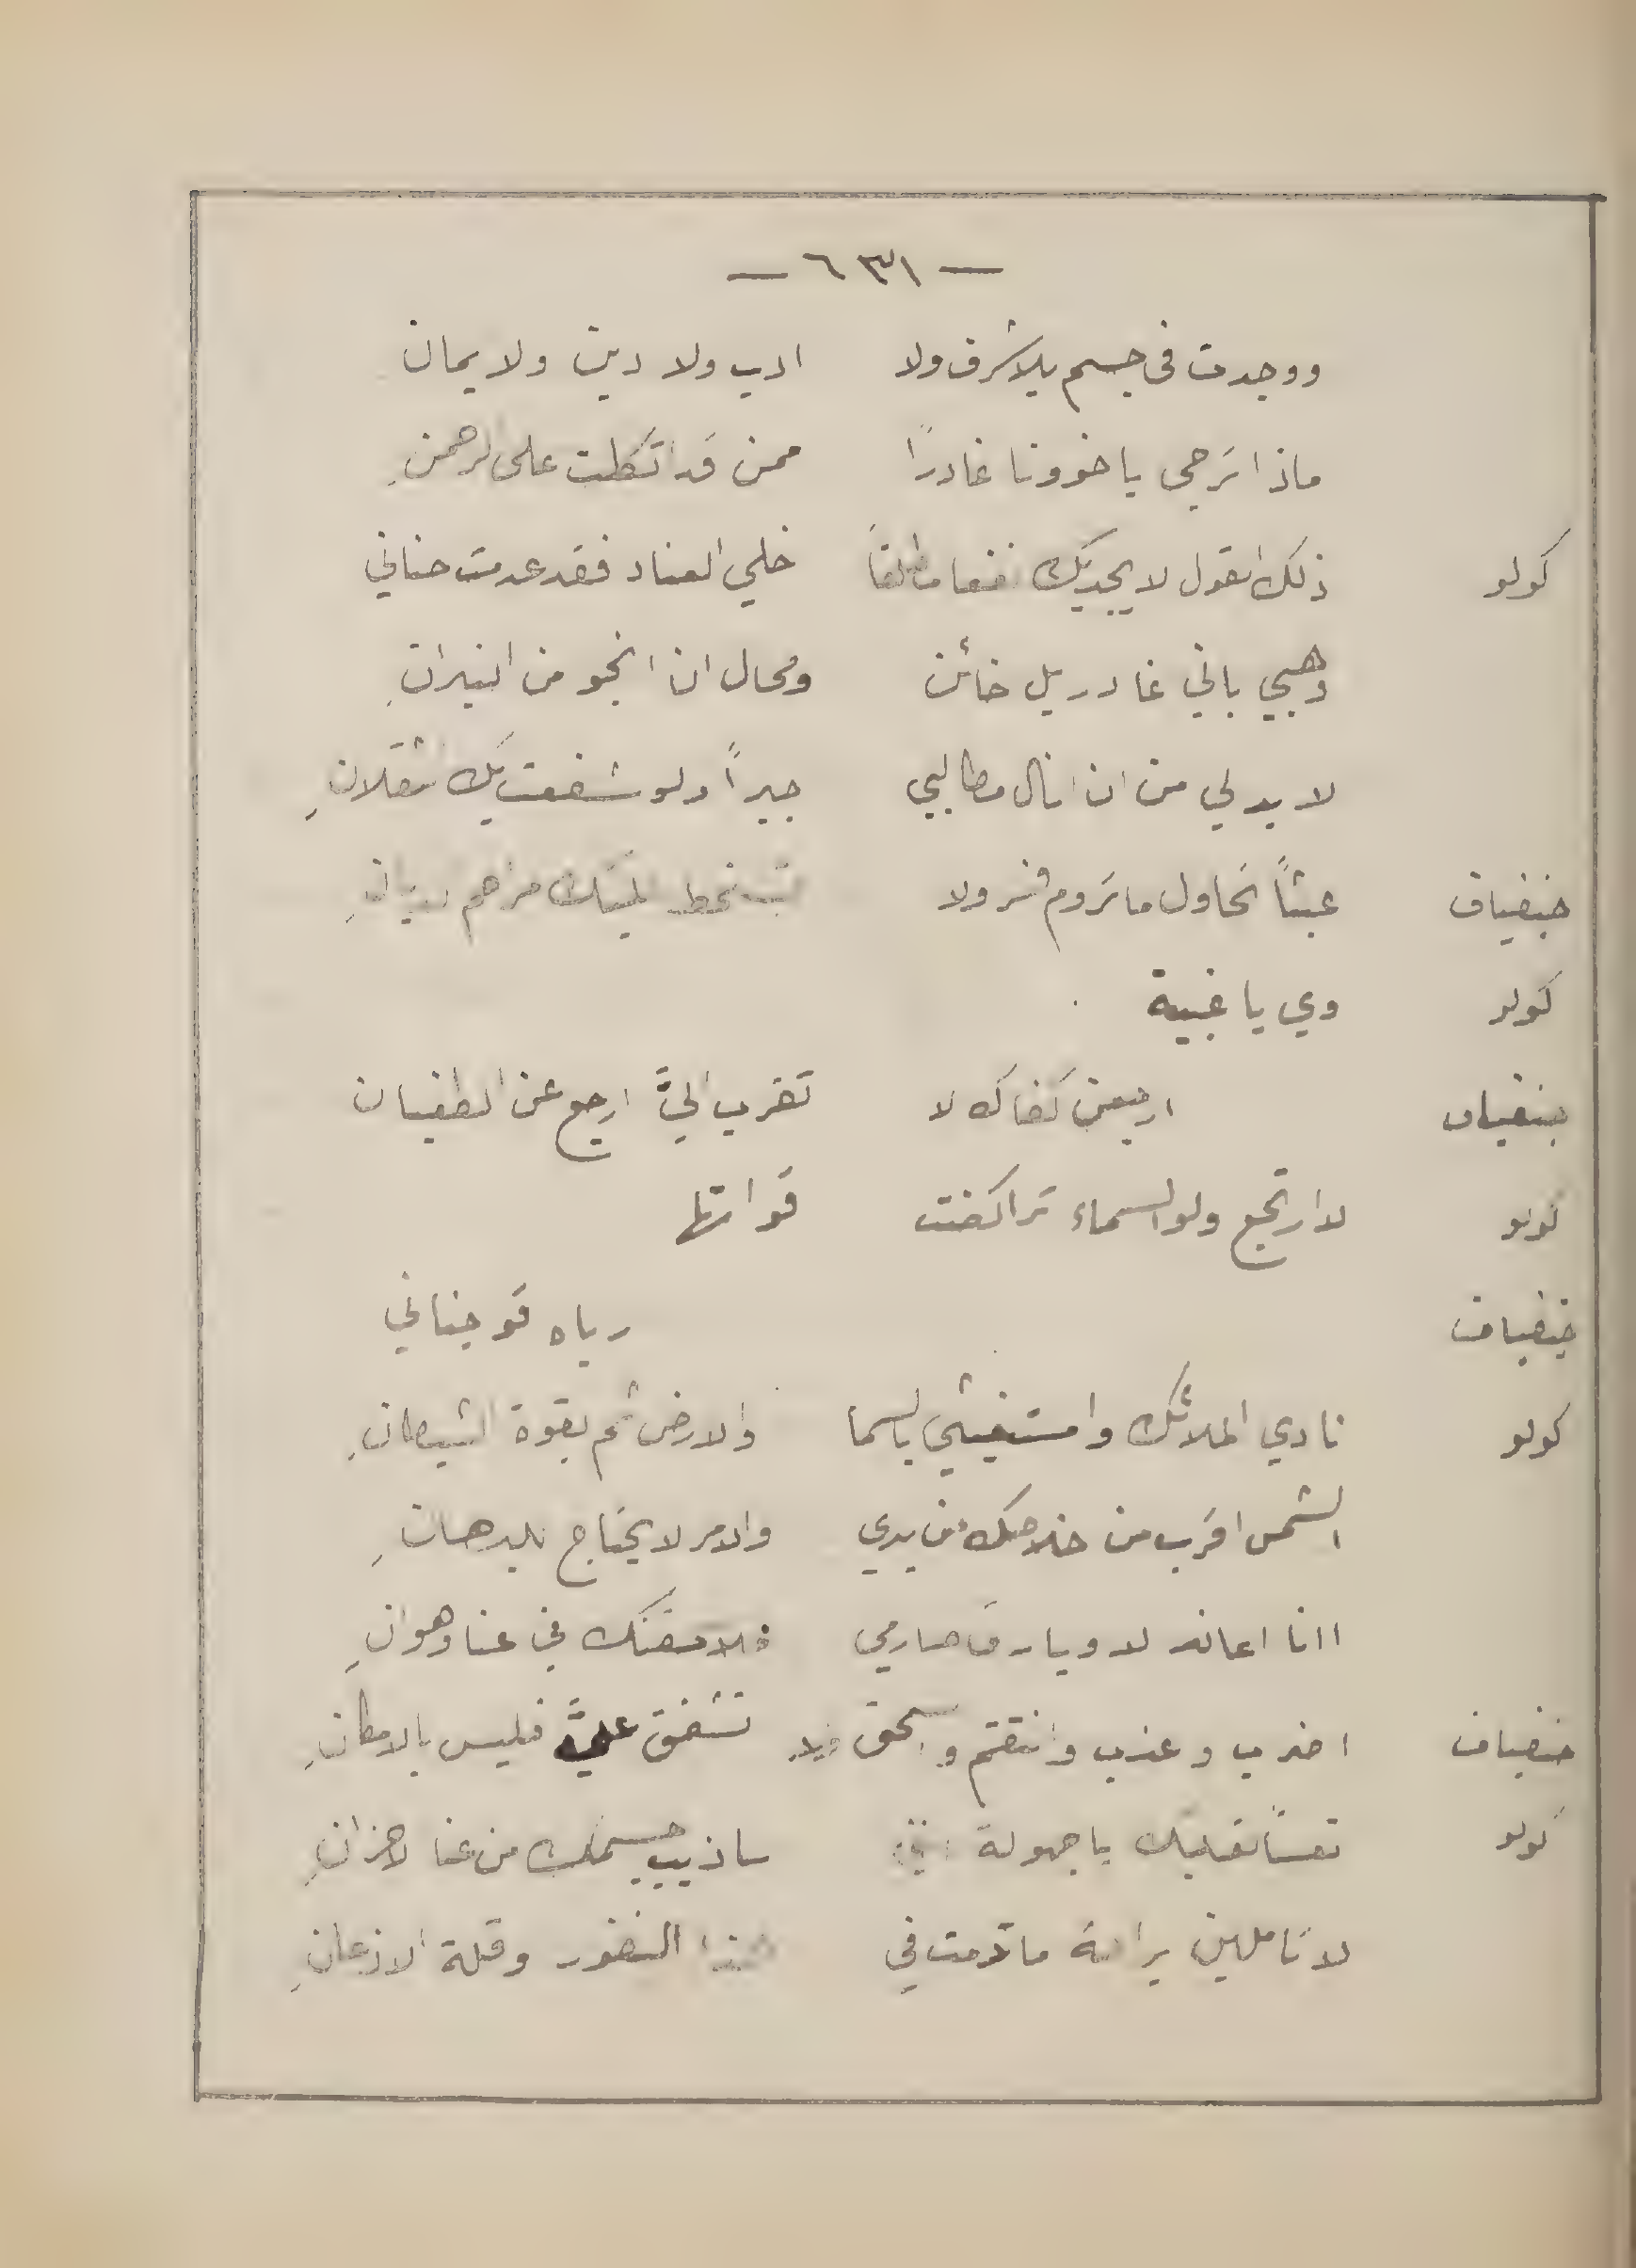 — ٦٣١ —
ووجدت فى جسم بلا شرف ولا ادب ولا دين ولا يمان
ماذا ترجى يا خوونا غادرًا ممن قد اتكلت على الرحمنِ
كولو ذلك القول لا يجديك نفعا مطلقاً خلي العناد فقد عدمت حناني
وهبي باني غادر بل خائن ومحال ان انجو من النيرانِ
لا بد لي من ان انال مطالبي جبراً ولو شفعت بك الثقلانِ
جنفياف عبثاً تحاول ما تروم فسر ولا تسخط
كولو وي يا غبية
جنفياف ارجعن كفاك لا تقرب اليَّ ارجع عن الطغيان
كولو لا ارتجع ولو السماء تراكضت قواتها
جنفياف رباه قو جناني
كولو نادي الملائك واستغيثي بالسما والارض ثم بقوة الشيطانِ
الشمس اقرب من خلاصك من يدي والامر لا يحتاج للبرهانِ
فلامضنك في عنا وهوانِ
جنفياف اضرب وعذب وانتقم واسحق ولا تشفق عليَّ فليس بالامكانِ
كولو تعساً لقلبك يا جهولة ساذيب جسمك من عنا الاحزانِ
لا تاملين براحة ما دمت في هذا النفور وقلة الاذعانِ